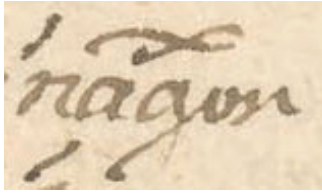 naãgon